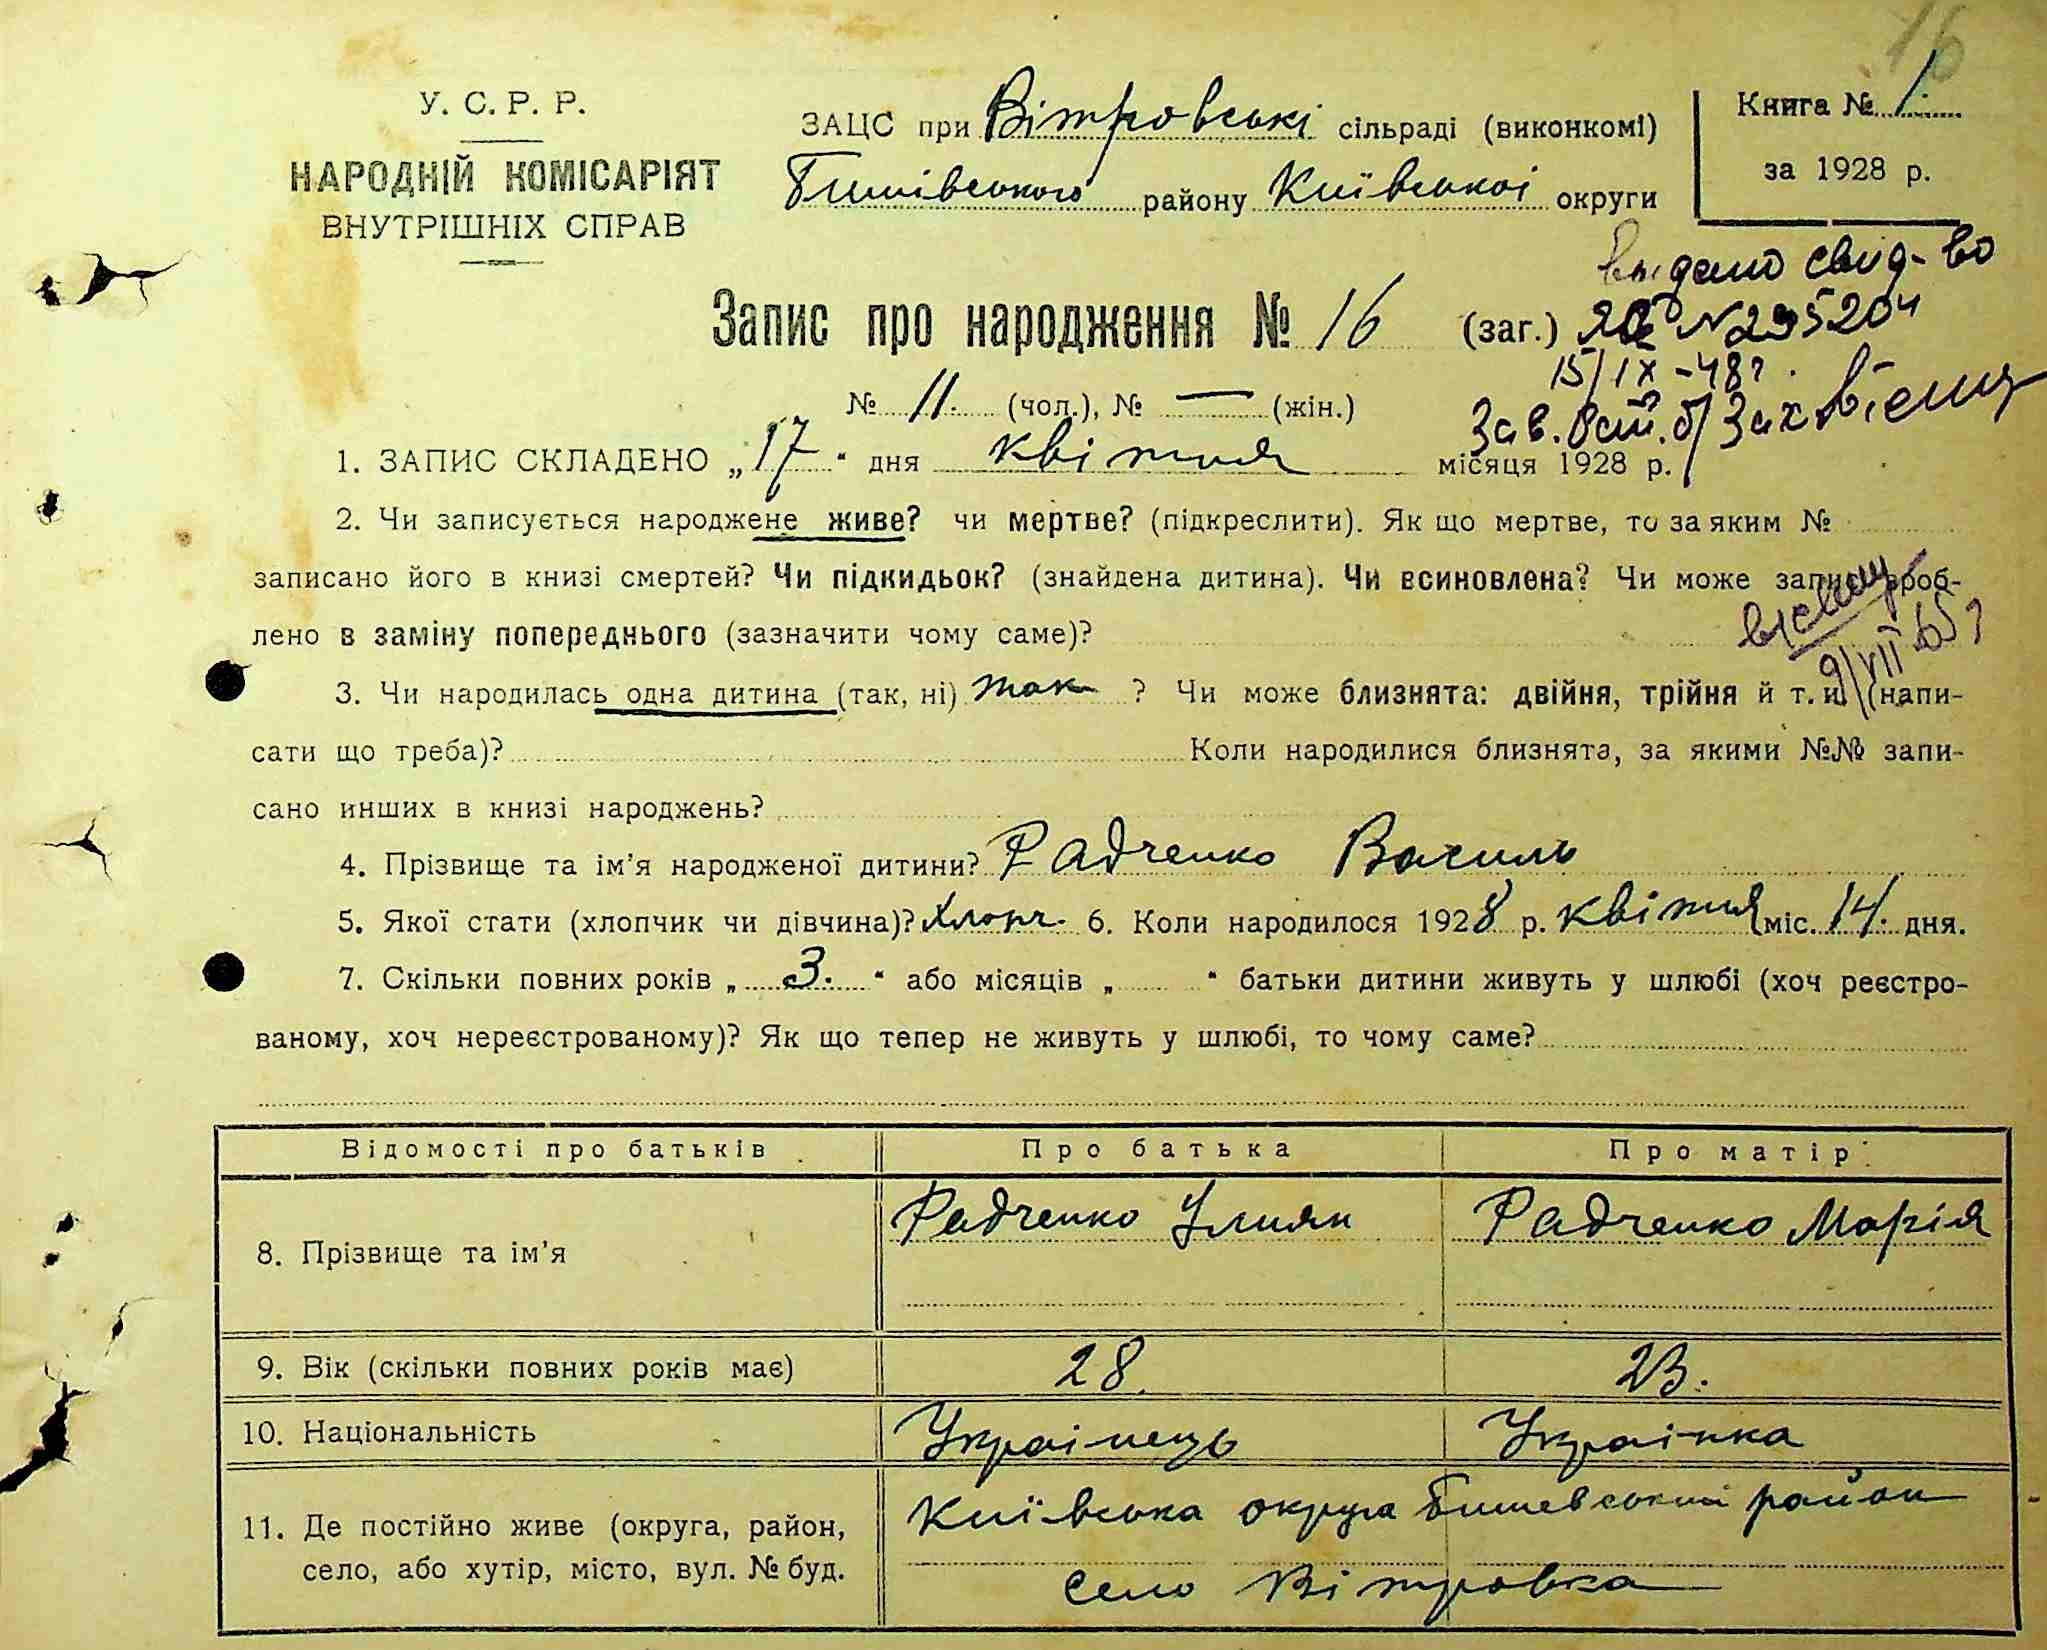 16
У. С. Р. Р.
НАРОДНІЙ КОМІСАРІЯТ
ВНУТРІШНІХ СПРАВ
ЗАЦС при Вітровські сільраді (виконкомі)
Бишівського району Київської округи
Книга № 1.
за 1928 р.
Запис про народження № 16 (заг.)
выдано свид-во
№ 295204
15/IX-48г.
Зав. бюро
№ 11. (чол.), № — (жін.)
1. ЗАПИС СКЛАДЕНО „17“ дня квітня місяця 1928 р.
2. Чи записується народжене живе? чи мертве? (підкреслити). Як що мертве, то за яким №
записано його в книзі смертей? Чи підкидьок? (знайдена дитина). Чи всиновлена? Чи може запис зроб-
лено в заміну попереднього (зазначити чому саме)?
9/VII 65г
3. Чи народилась одна дитина (так, ні) так ? Чи може близнята: двійня, трійня й т. и. (напи-
сати що треба)? Коли народилися близнята, за якими №№ запи-
сано инших в книзі народжень?
4. Прізвище та ім'я народженої дитини? Радченко Василь
5. Якої стати (хлопчик чи дівчина)? Хлопч. 6. Коли народилося 1928 р. квітня міс. 14. дня.
7. Скільки повних років „ 3. “ або місяців „ “ батьки дитини живуть у шлюбі (хоч реєстро-
ваному, хоч нереєстрованому)? Як що тепер не живуть у шлюбі, то чому саме?
Відомості про батьків Про батька Про матір
8. Прізвище та ім'я Радченко Улиян Радченко Марія
9. Вік (скільки повних років має) 28. 23.
10. Національність Українець Українка
11. Де постійно живе (округа, район, Київська округа Бишевський район
село, або хутір, місто, вул. № буд. село Вітровка